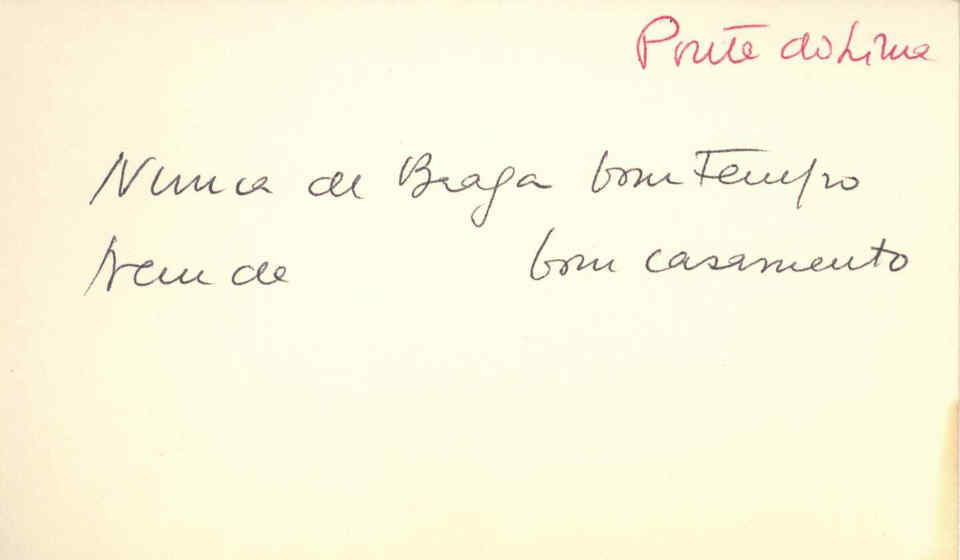 Ponte do Lima
Nunca de Braga bom Tempo
Nem de bom casamento